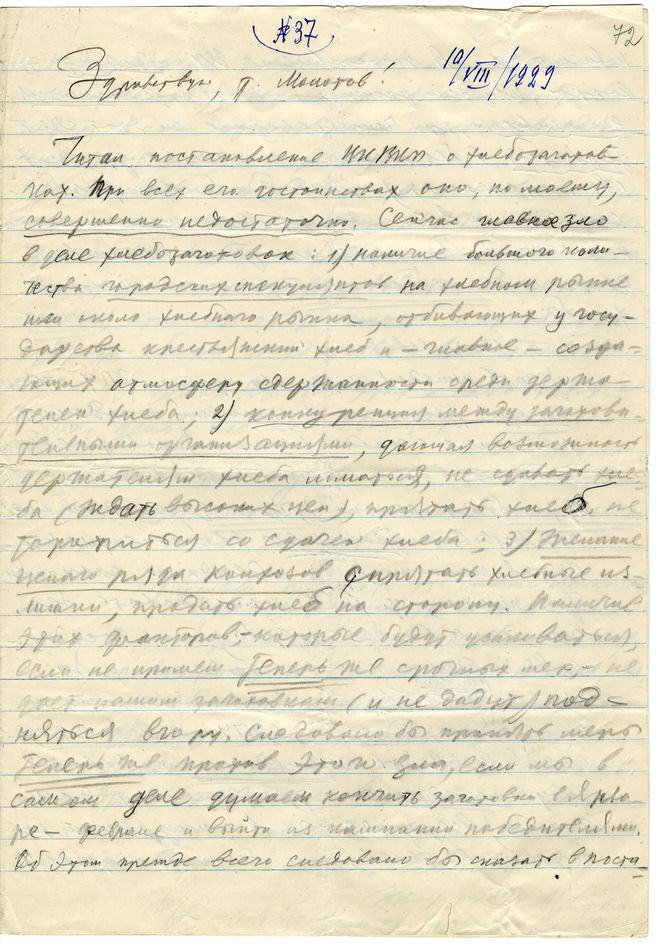 № 37
72
Здравствуй, т. Молотов!
10/VIII/1929
Читал постановление ЦКВКП о хлебозаготов-
ках. При всех его достоинствах оно, по моему,
совершенно недостаточно. Сейчас главное зло
в деле хлебозаготовок: 1) наличие большого коли-
чества городских спекулянтов на хлебном рынке
или около хлебного рынка, отбивающих у госу-
дарства крестьянский хлеб и – главное – созда-
ющих атмосферу сдержанности среди держа-
телей хлеба; 2) конкуренция между заготови-
тельными организациями, дающая возможность
держателям хлеба ломаться, не сдавать хле-
ба (ждать высоких цен), прятать хлеб, не
торопиться со сдачей хлеба; 3) желание
целого ряда колхозов спрятать хлебные из-
лишки, продать хлеб на сторону. Наличие
этих факторов, – которые будут усиливаться,
если не примем теперь же срочных мер, – не
дает нашим заготовкам (и не дадут) под-
няться вгору. Следовало бы принять меры
теперь же против этого зла, если мы в
самом деле думаем кончить заготовки в янва-
ре – феврале и выйти из кампании победителями.
Об этом прежде всего следовало бы сказать в поста-